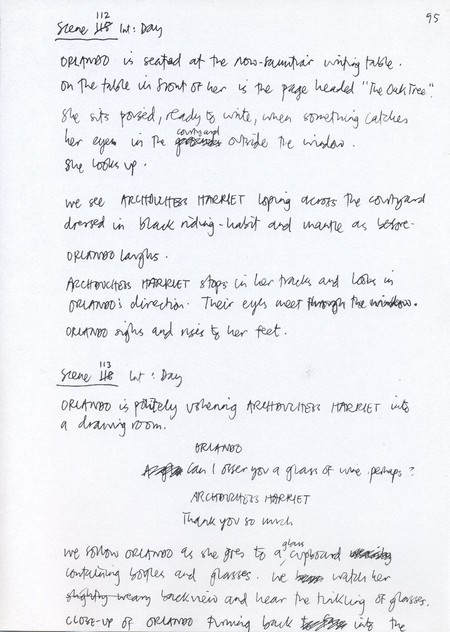 95
112
Scene 118 Int: Day
ORLANDO is seated at the now-familiar writing table.
On the table in front of her is the page headed "The Oak Tree".
She sits poised, ready to write, when something catches
courtyard
her eye in the outside the window.
She looks up.
We see ARCHDUCHESS HARRIET loping across the courtyard
dressed in black riding-habit and mantle as before.
ORLANDO laughs.
ARCHDUCHESS HARRIET stops in her tracks and looks in
ORLANDO's direction. Their eyes meet through the window.
ORLANDO sighs and rises to her feet.
113
Scene 118 Int: Day
ORLANDO is politely ushering ARCHDUCHESS HARRIET into
a drawing room.
ORLANDO
Can I offer you a glass of wine perhaps?
ARCHDUCHESS HARRIET
Thank you so much
glass
We follow ORLANDO as she goes to a cupboard
containing bottles and glasses. We watch her
slightly weary back view and hear the tinkling of glasses.
CLOSE-UP of ORLANDO turning back into the